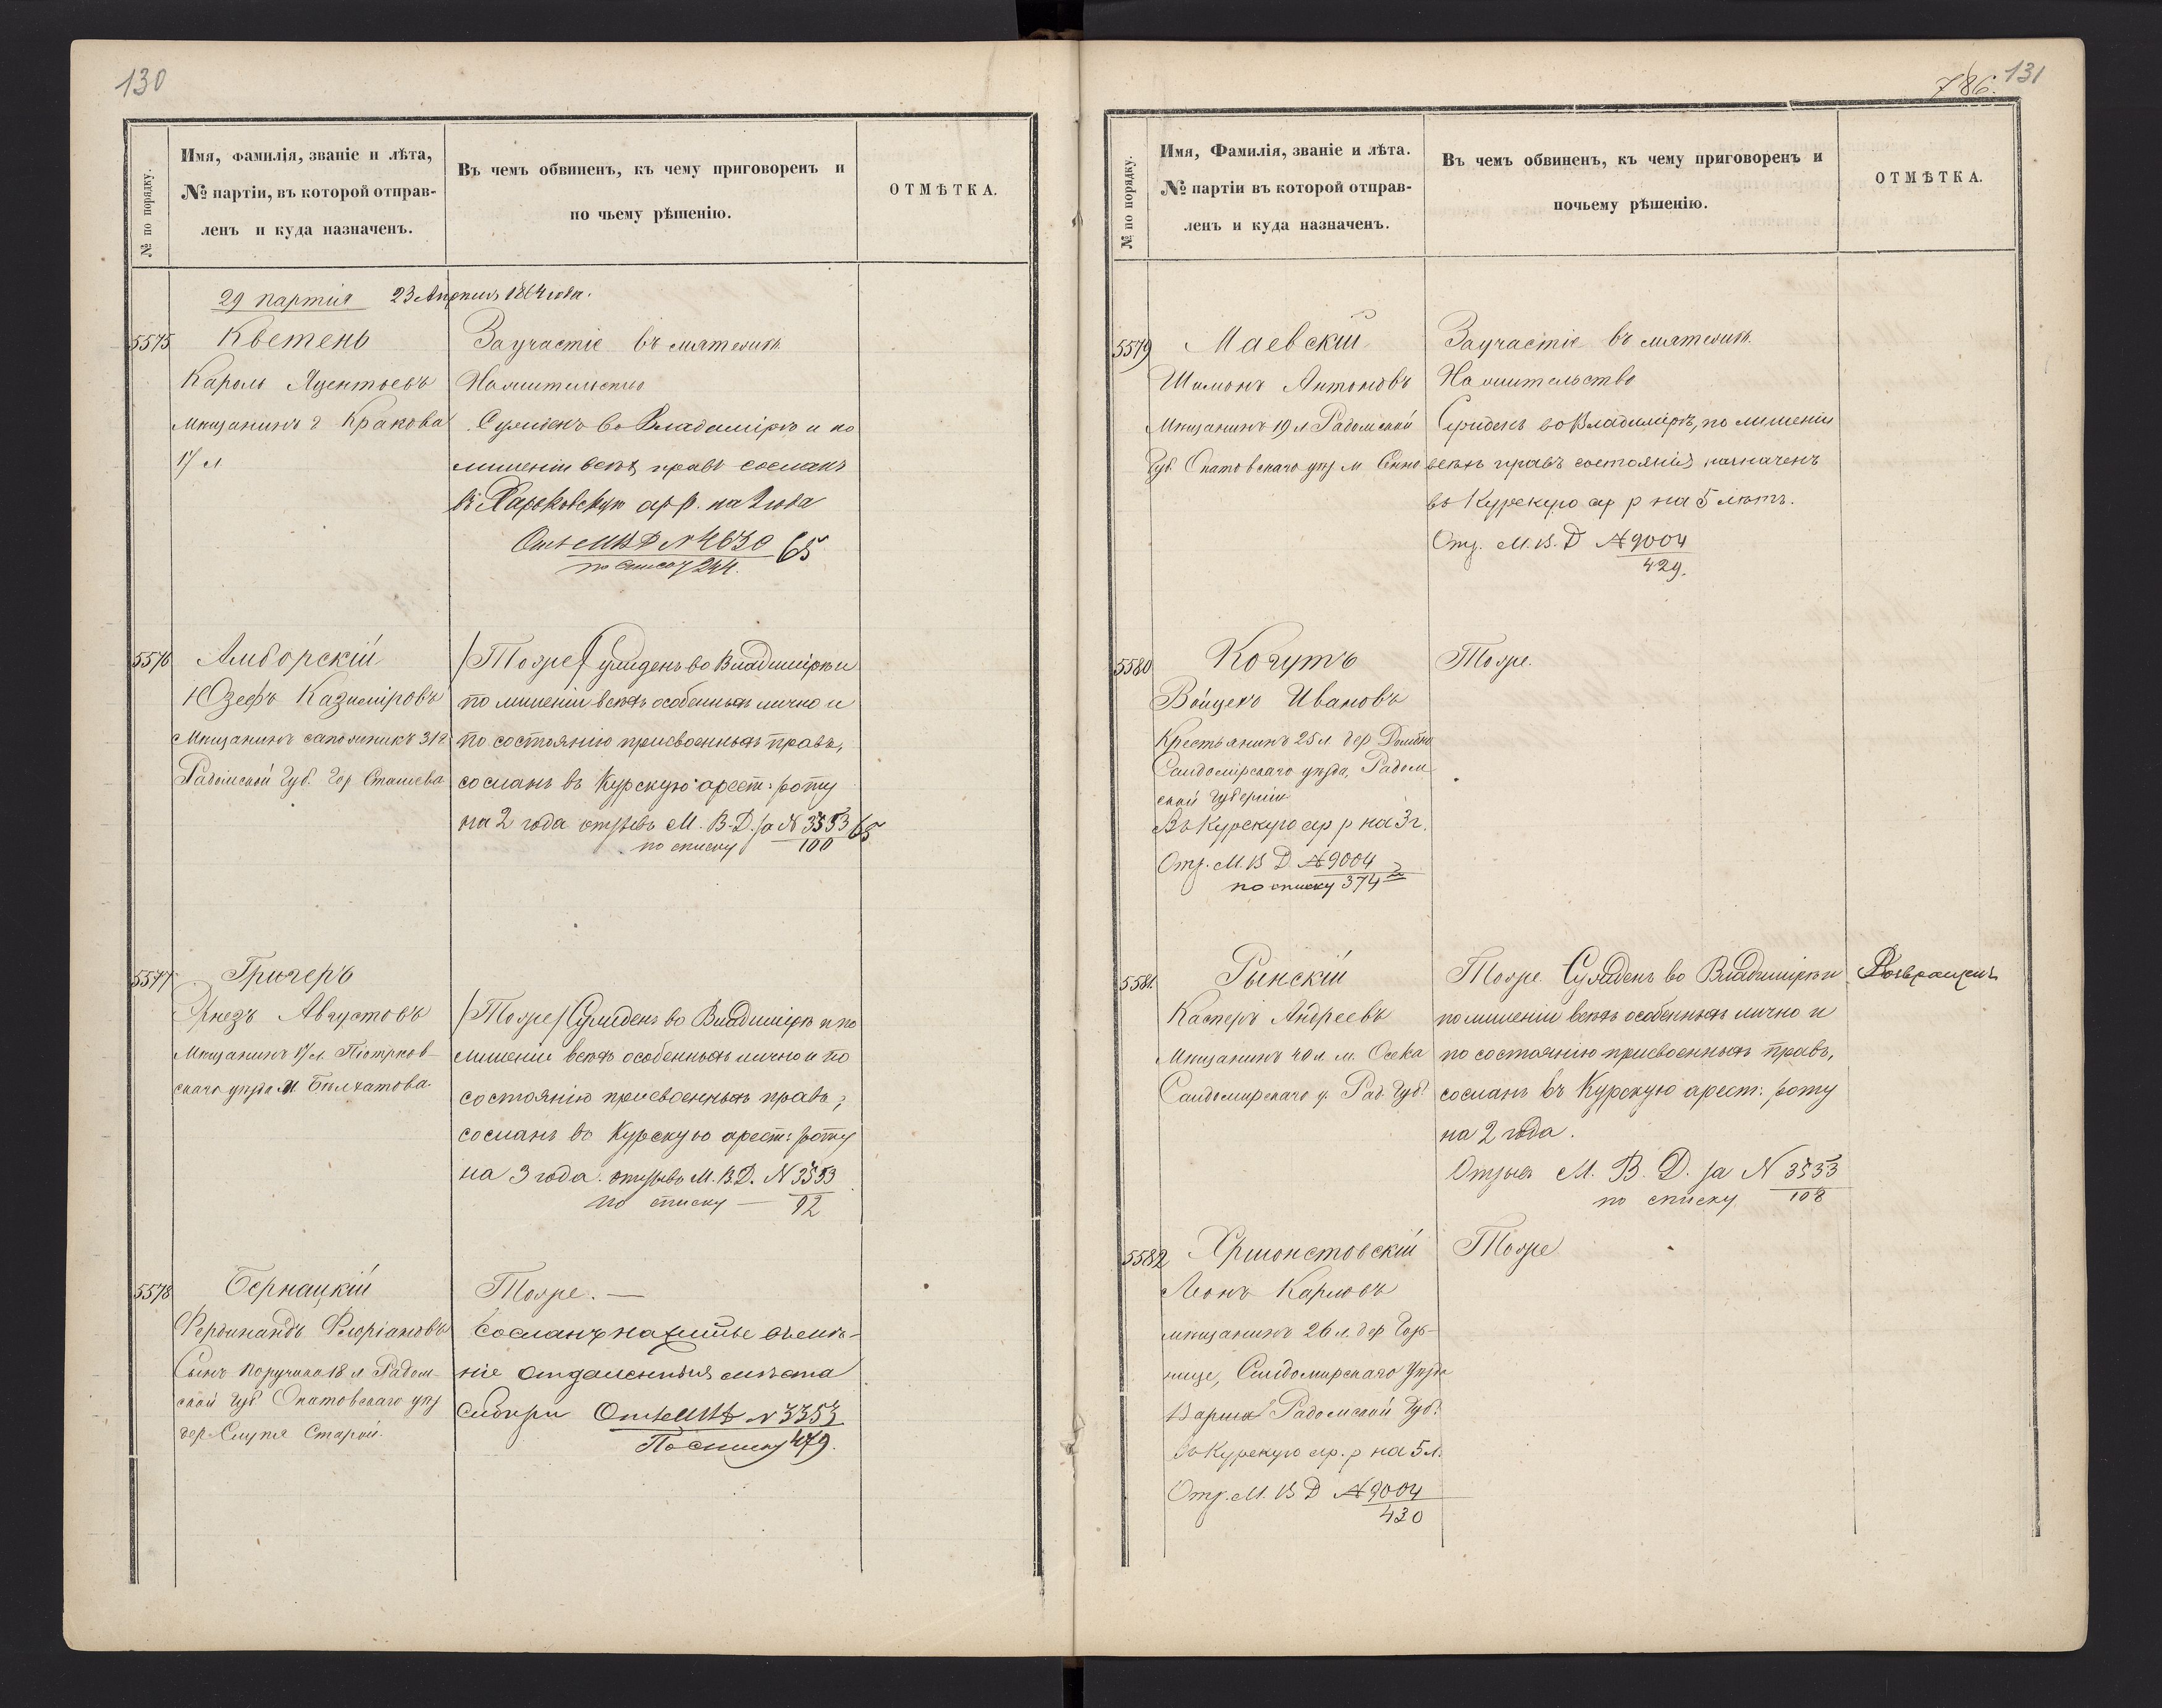 130
№ по порядку.
Имя, фамилія, званіе и лѣта,
№ партіи, въ которой отправ-
ленъ и куда назначенъ.
Въ чемъ обвиненъ, къ чему приговоренъ и
по чьему рѣшенію.
ОТМѢТКА.
29 партія 23 Апрѣля 1864 года.
5575
Кветень
Кароль Яцентьевъ
Мѣщанинъ г Кракова
17 л
За участіе въ мятежѣ
Намѣстничество
Сужденъ во Владимірѣ и по
лишеніи всѣхъ правъ сосланъ
въ Харьковскую ар р. на 2 года
Отз МВД № 4630 65
по списку 244.
5576
Амборскій
Юзефъ Казиміровъ
Мѣщанинъ сапожникъ 31 г.
Радомской Губ. Гор Сташева
/Тоже/ Сужденъ во Владимірѣ и
по лишеніи всѣхъ особенныхъ лично и
по состоянію присвоенныхъ правъ,
сосланъ въ Курскую арест: роту
на 2 года отзывъ М. В. Д. за № 3353 65
по списку 100
5577
Гричеръ
Августовъ
Мѣщанинъ 17 л. Піотрков-
скаго уѣзда М. Белхатова
/Тоже/ Сужденъ во Владимірѣ и по
лишеніи всѣхъ особенныхъ лично и по
состоянію присвоенныхъ правъ,
сосланъ во Курскую арест: роту
на 3 года. отзывъ М. В. Д. № 3353
по списку — 92
5578
Бернацкій
Фердинандъ Флоріановъ
Сынъ поручика 18 л Радом-
ской Губ Опатовскаго уѣз
дер Слупя Старой.
Тоже. —
Сосланъ на житье въ менѣ-
ѣе отдаленныя мѣста
Сибири Отз МВД № 3353
По списку 479.
131
786.
№ по порядку.
Имя, Фамилія, званіе и лѣта.
№ партіи въ которой отправ-
ленъ и куда назначенъ.
Въ чемъ обвиненъ, къ чему приговоренъ и
почьему рѣшенію.
ОТМѢТКА.
5579
Маевскій
Шимонъ Антоновъ
Мѣщанинъ 19 л Радомской
Губ Опатовскаго уѣз м Сенно
За участіе въ мятежѣ.
Сужденъ во Владимірѣ, по лишеніи
всѣхъ правъ состоянія назначенъ
въ Курскую ар р на 5 лѣтъ.
Отз. М. В. Д № 9004
429.
5580
Когутъ
Войцехъ Ивановъ
Крестьянинъ 25 л. дер
Сандомірскаго уѣзда, Радом
ской Губерніи
Въ Курскую ар р на 3 г.
Отз. М. В Д № 9004
по списку 374
Тоже.
5581.
Рынскій
Касперъ Андреевъ
Мѣщанинъ 40 л. м. Осека
Сандомирскаго у. Рад. Губ.
Тоже. Сужденъ во Владимірѣ и
по лишеніи всѣхъ особенныхъ лично и
по состоянію присвоенныхъ правъ,
сосланъ въ Курскую арест: роту
на 2 года.
Отзывъ М. В. Д. за № 3353
по списку 108
Возвращенъ
5582
Хршонстовскій
Леонъ Карловъ
мѣщанинъ 26 л. дер Горъ-
лице, Сандомирскаго Уѣзда
Радомской Губ.
въ Курскую ар. р на 5 л.
Отз. М. В Д № 9004
430
Тоже